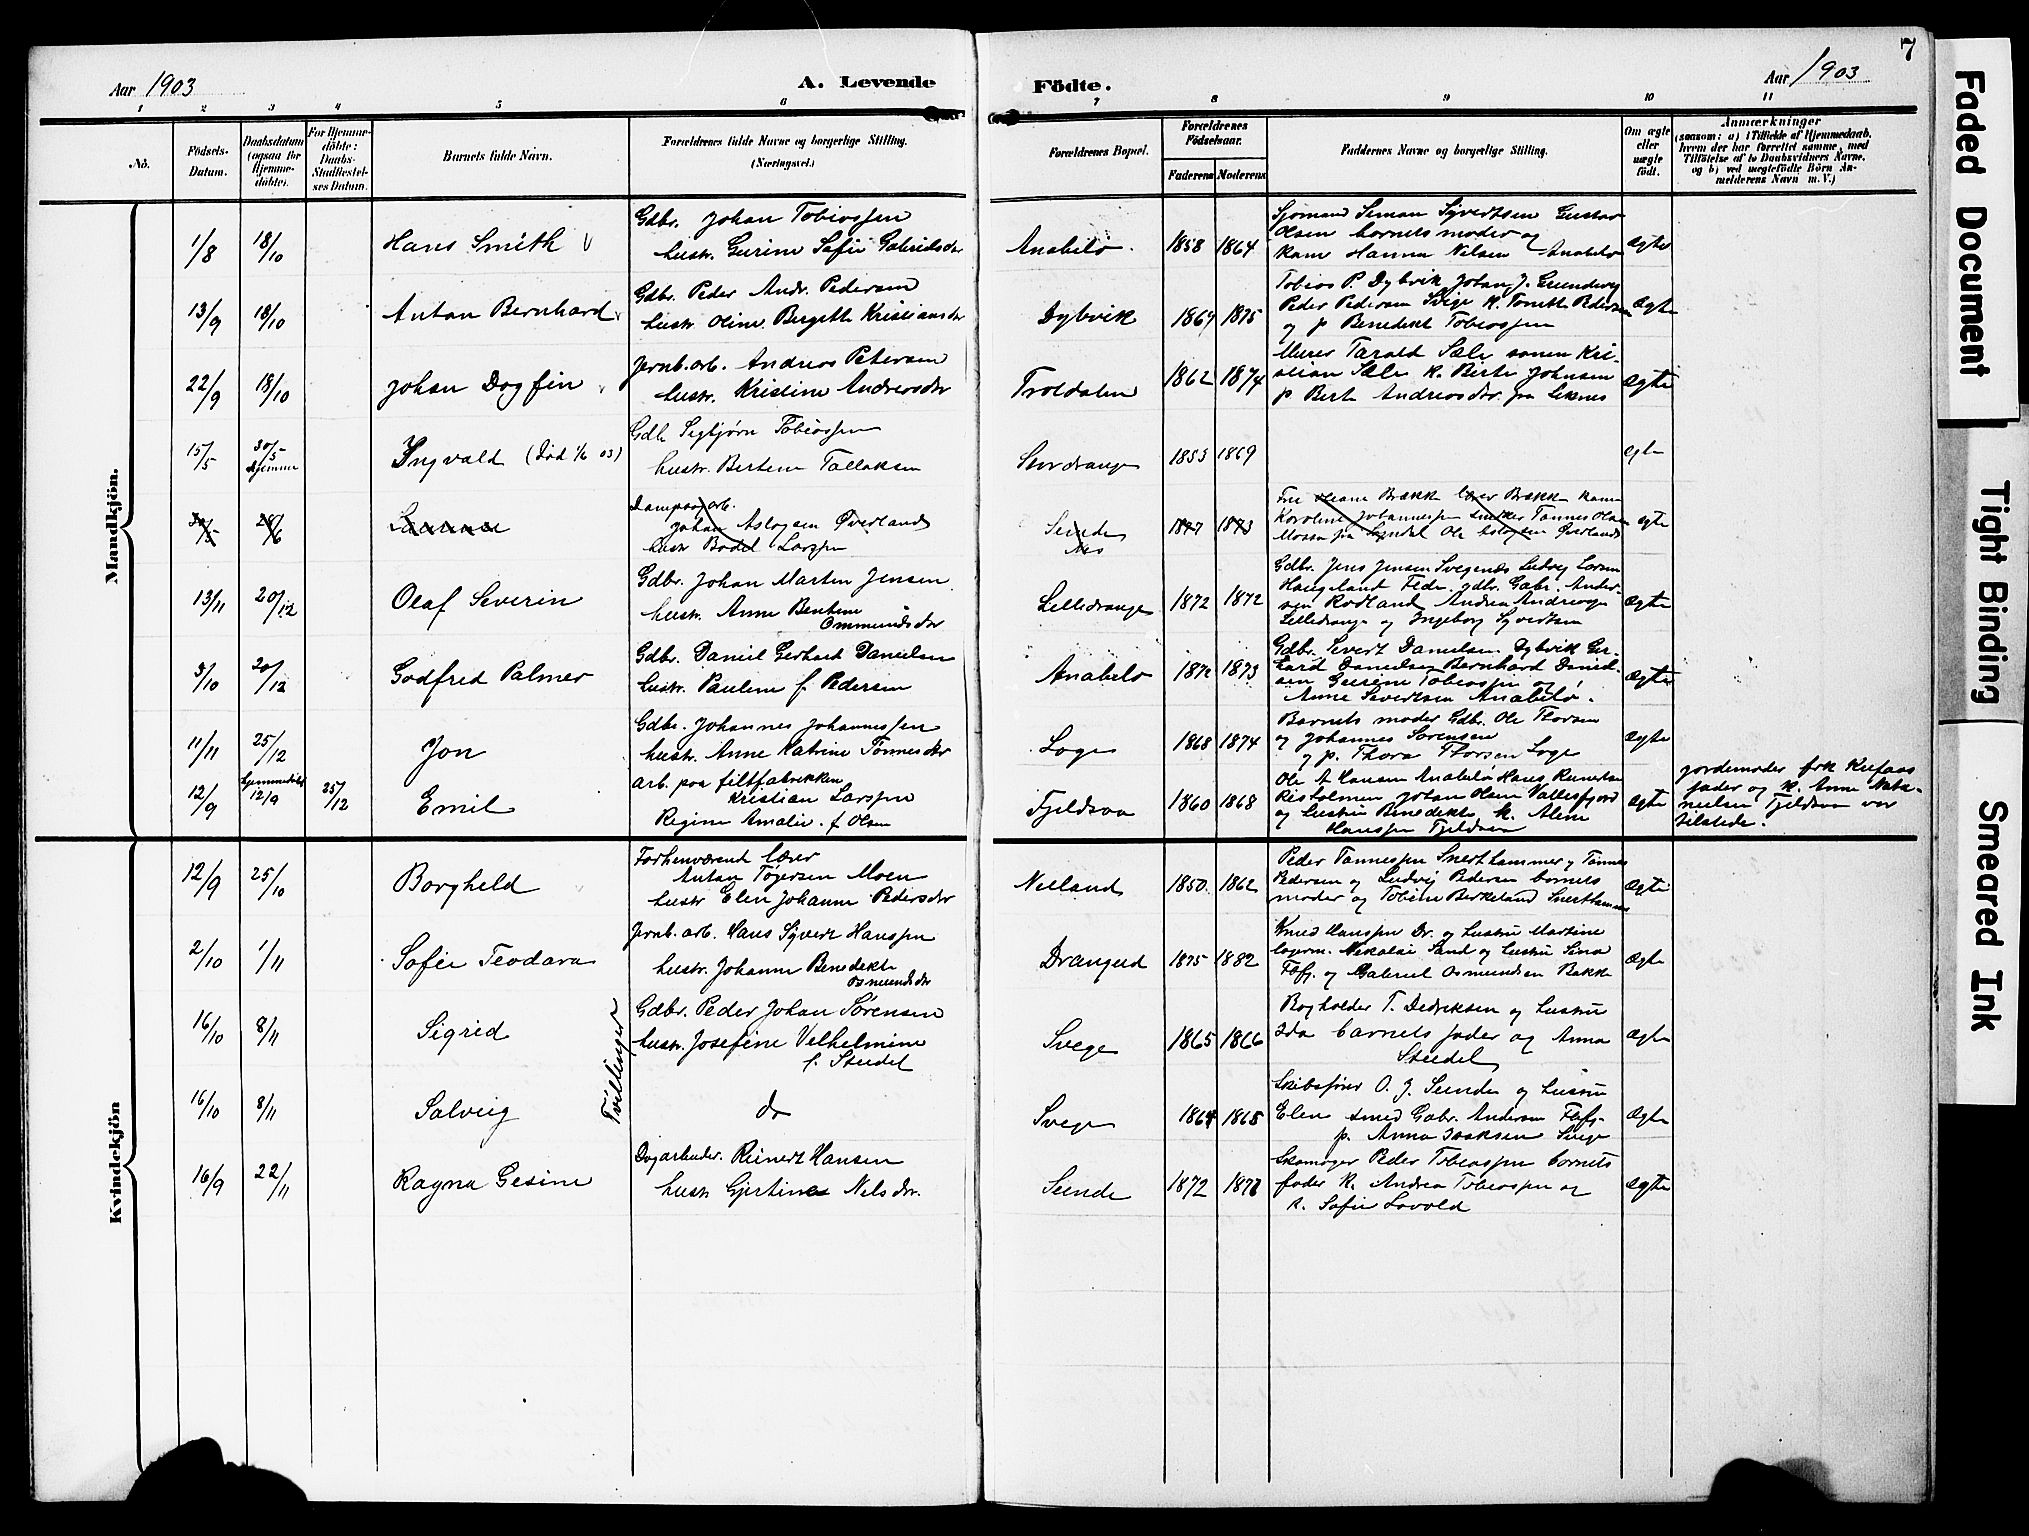 7
Aar 1903
A. Levende
Födte.
Aar 1903
1 2 3 4 5 6 7 8 9 10 11
No.
Födsels-
Datum.
Daabsdatum
(ogsaa for
Hjemme-
döbte).
For Hjemme-
döbte:
Daabs-
Stadfæstel-
ses Datum.
Barnets fulde Navn.
Forældrenes fulde Navne og borgerlige Stilling.
(Næringsvei.)
Forældrenes Bopæl.
Forældrenes
Födselsaar.
Faderens Moderens
Faddernes Navne og borgerlige Stilling.
Om ægte
eller
uægte
födt.
Anmærkninger
(saasom: a) i Tilfælde af Hjemmedaab,
hvem der har forrettet samme, med
Tilföielse af to Daabsvidners Navne,
og b) ved uægtefödte Börn An-
melderens Navn m. V.)
Mandkjön.
1/8 18/10 Hans Smith
Gdbr. Johan Tobiassen
hustr. Gurine Sofie Gabrielsdtr
Anabelø 1858 1864
Sjømand Simon Syvertsen Gustav
Olsen barnets moder og
kone Hanna Nilsen Anabelø
Ægte
13/9 18/10 Anton Bernhard
Gdbr. Peder Andr. Pedersen
hustr. Oline Bergitte Kristiansdtr
Dybvik 1864 1875
Tobias P. Dybvik Johan J. Grundvig
Peder Pedersen Svige K. Pedersen
og p Benedikt Tobiassen
Ægte
22/9 18/10 Johan Dagfin
Jernb. arb. Andreas Petersen
hustr. Kristine Andreasdtr
Troldalen 1862 1874
Murer Tarald Sæle sønen Kri-
stian Sæle K. Berte Johnsen
p Berte Andreasdtr. fra Leknes
Ægte
15/5 30/5 Hjemme Ingvald (Død 1/6 03)
Gdb Sigbjørn Tobiassen
hustr. Bertine Tallaksen
Stordrange 1853 1869
egte
30/5 28/6 Laurine
Dampsag arb.
Johan Aslagsen Øverland
hustr Bodel Larssen
Sunde 1877 1873
Fru Oleane Brækk lærer Brækk kone
Karoline Johannessen snekker Tønnes Olsen
Mossen fra Lyndal Ole Aslagsen Øverland
egte
13/11 20/12 Olaf Severin
Gdbr. Johan Martin Jensen
hustr. Anne Bentine
Ommundsdtr
Lilledrange 1872 1872
Gdbr. Jens Jensen Svegenes Ludvig Larsen
Haugeland Fede. gdbr. Gabr. Ander-
sen Rødland Andrea Andreasen
Lilledrange og Ingeborg Syvertsen
Ægte
3/10 20/12 Godfred Palmer
Gdbr. Daniel Gerhart Danielsen
hustr. Pauline f. Pedersen
Anabelø 1872 1873
Gdbr. Severt Danielsen Dybvik Ger-
hard Danielsen Bernhard Daniel-
sen Gurine Tobiassen og
Anne Severtsen Anabelø.
Ægte
11/11 25/12 Jon
Gdbr. Johannes Johannessen
hustr. Anne Katrine Tønnesdtr
Loge 1868 1874
Barnets moder Gdbr. Ole Thorsen
og Johannes Sørensen
og p. Thora Thorsen Loge
Ægte
12/9 hjemmedøbt 12/9 25/12 Emil
arb. paa filtfabrikken
Kristian Larssen
Regine Amalie f. Olsen
Fjeldsaa 1860 1868
Ole A Hansen Anabelø Hans Reinertsen
Risholmen Johan Olsen Vallesfjord
og hustru Benedikte K. Aline
Hanssen Fjeldsaa
Ægte
jordemoder frk Kufaas
fader og K. Anne Nata-
nielsen Fjeldsaa var
tilstede.
Kvindekjön
12/9 25/10 Borghild
Forhenværend lærer
Anton Tøgersen Moen
hustr Elen Johanne Pedersdtr
Neeland 1850 1862
Peder Tønnessen Snerthammer g Tønnes
Pedersen og Ludvig Pedersen barnets
moder og Tobine Birkeland Snerthammer
Ægte
2/10 1/11 Sofie Teodara
Jernb. arb. Hans Syvert Hanssen
hustr. Johanne Benedikte
Osmundsdtr
Drangeid 1875 1882
Knud Hanssen Dr. og hustru Martine
Nikolai Sand og hustru Sina
Flefj. og Gabriel Osmundsen Bakke
Ægte
16/10 8/11 Sigrid
Tvillinger
Gdbr. Peder Johan Sørensen
hustr. Josefine Vilhelmine
f. Stedel
Svege 1865 1866
Bogholder T. Dedriksen og hustru
Ida barnets fader og Anna
Stedel
Ægte
16/10 8/11 Solveig
do
Svege 1864 1865
Skibsfører O. J. Sunde og hustru
Elen smed Gabr. Andersen Flefj.
p. Anna Isaksen Svege
Ægte
16/9 22/11 Ragna Gesine
Dagarbeider. Reinert Hansen
hustr Gjertine Nelsdtr.
Sunde 1872 1878
Skomager Peder Tobiassen barnets
fader K. Andrea Tobiassen og
K. Sofie Lovold
Ægte
Faded Document
Tight Binding
Smeared Ink